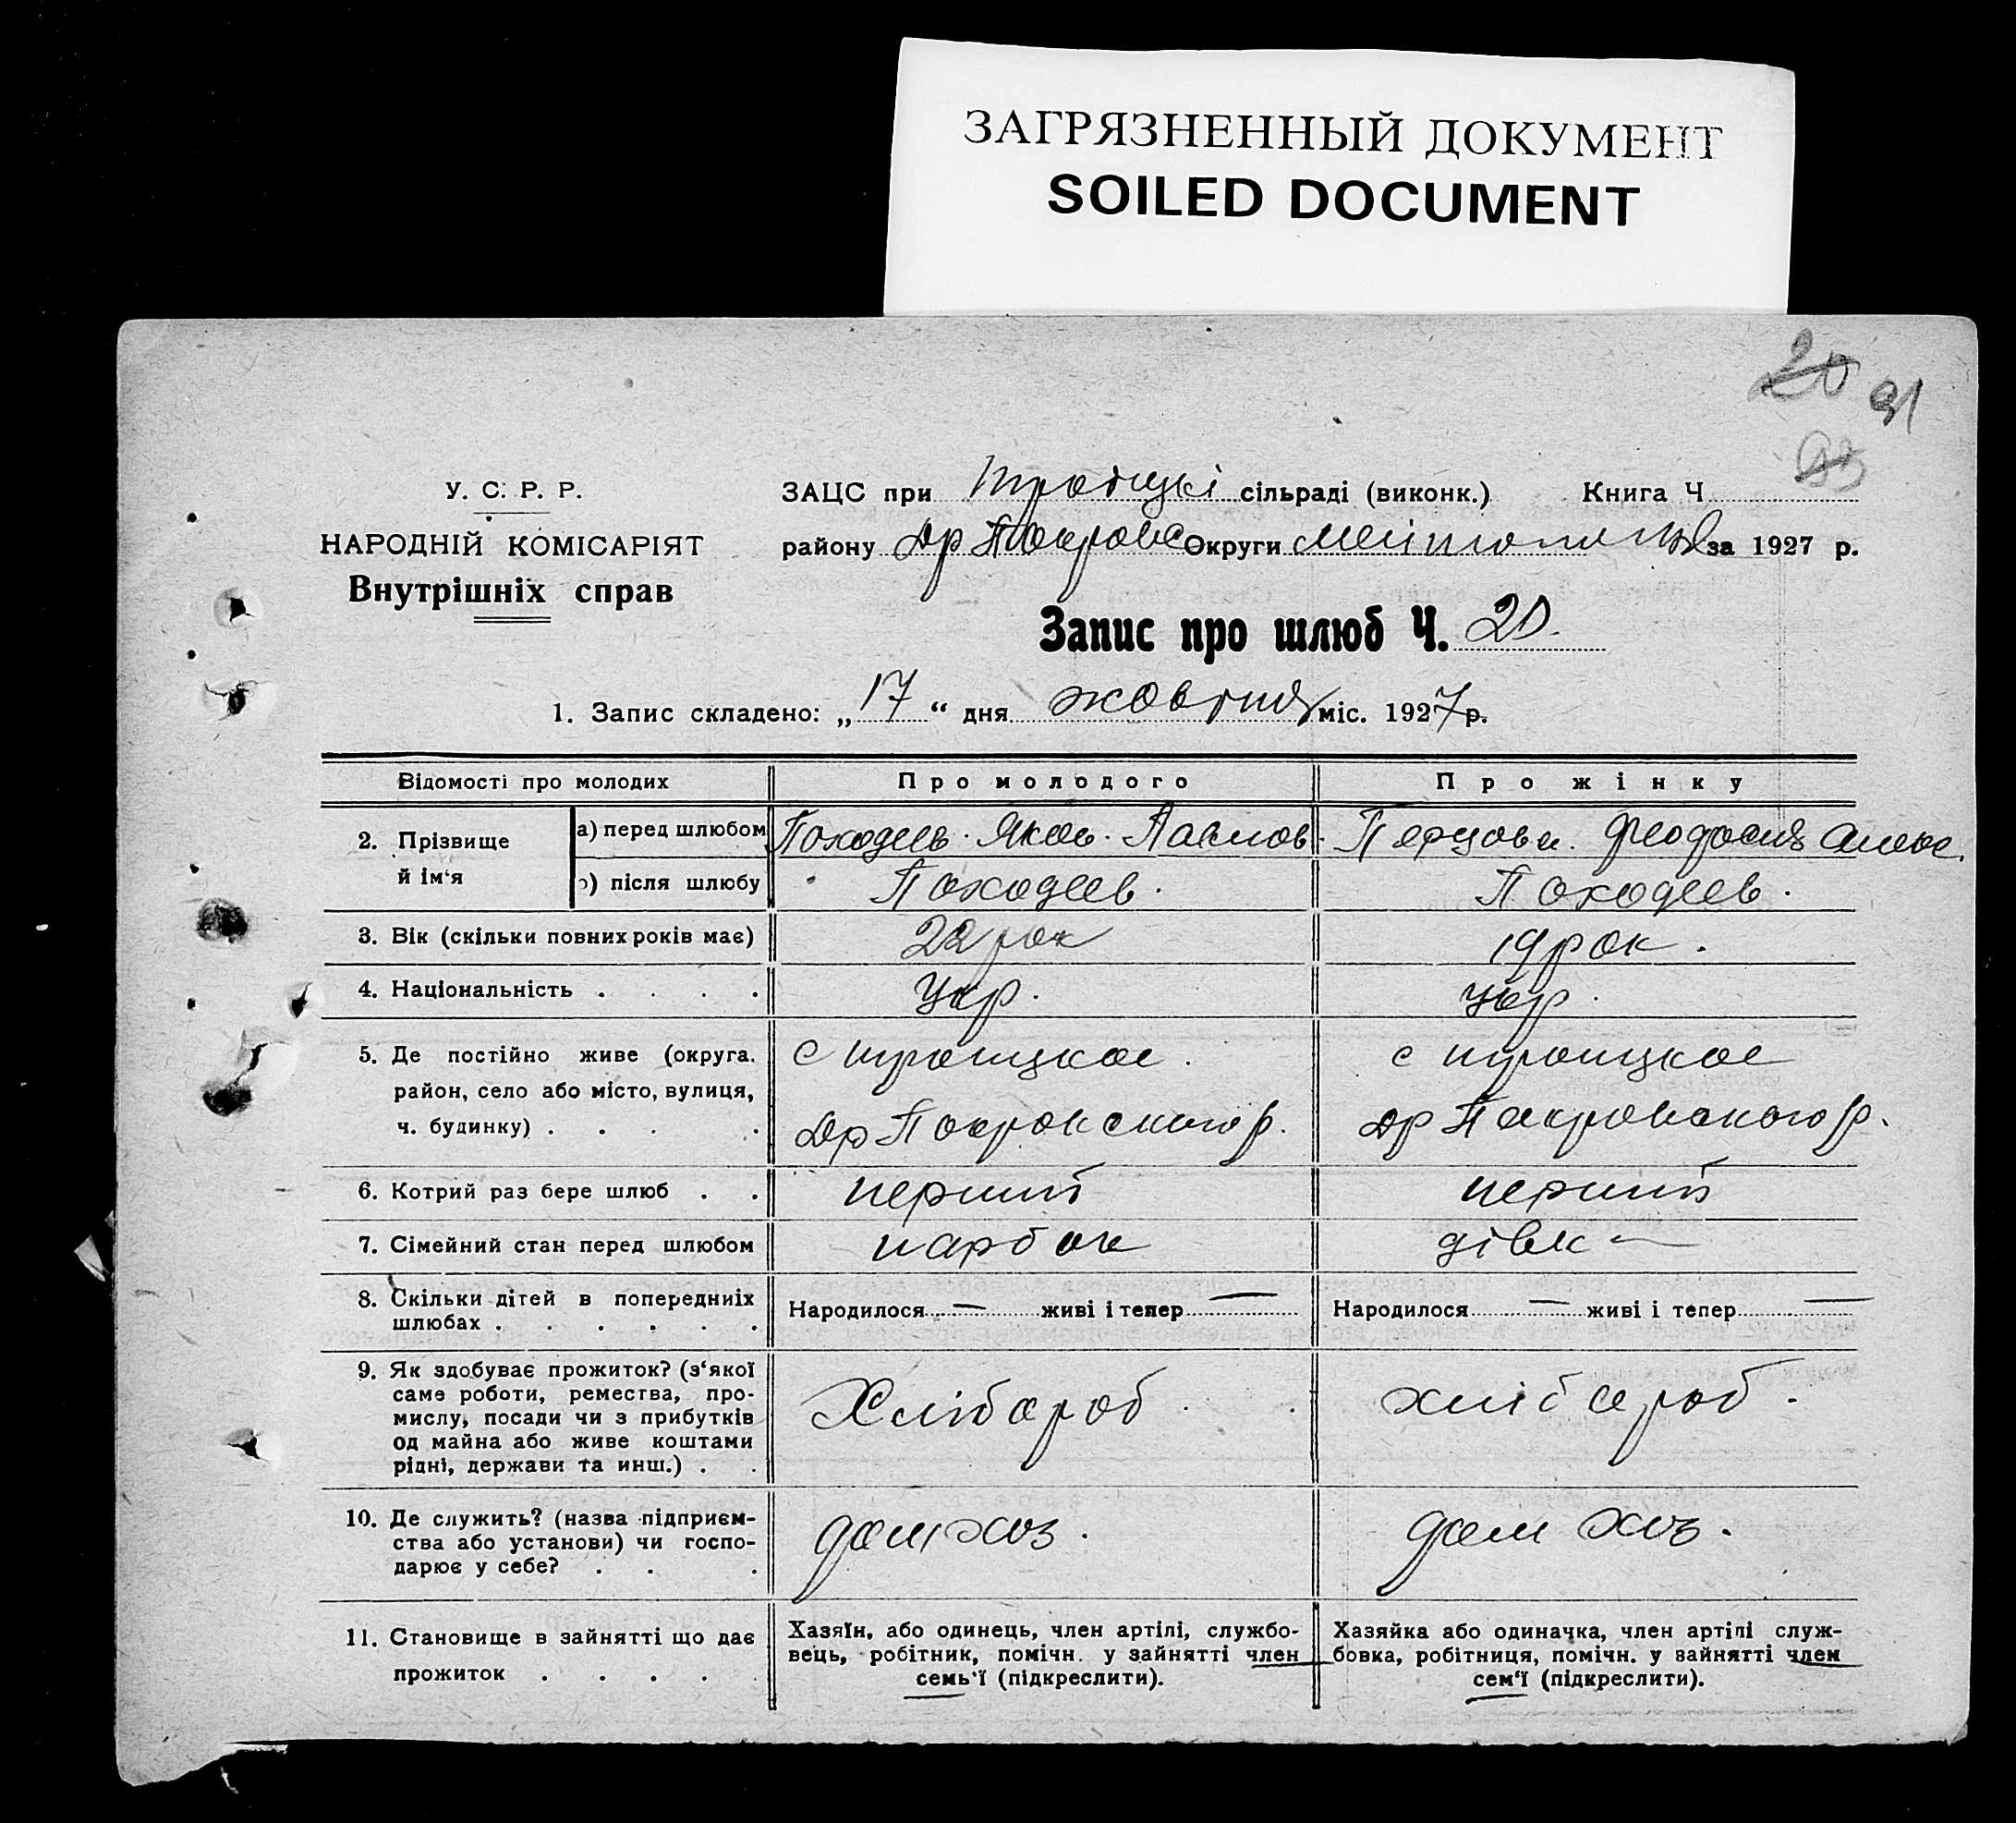 ЗАГРЯЗНЕННЫЙ ДОКУМЕНТ
SOILED DOCUMENT
20 91
У. С. Р. Р.
НАРОДНІЙ КОМІСАРІЯТ
Внутрішніх справ
ЗАЦС при Троїцкі сільраді (виконк.) Книга Ч
району Др Покровс Округи за 1927 р.
Запис про шлюб Ч. 20.
1. Запис складено: „17“ дня жовтня міс. 1927 р.
Відомості про молодих
Про молодого
Про жінку
2. Прізвище й ім‘я
а) перед шлюбом
Походеев. Яков. Павлов.
Перцова. Феодосия Алекс.
б) після шлюбу
Походеев.
Походеев.
3. Вік (скільки повних років має)
22 рок
19 рок.
4. Національність . . . .
Укр.
Укр.
5. Де постійно живе (округа.
район, село або місто, вулиця,
ч. будинку) . . . .
с троицкое.
Др Покровского р.
с троицкое
Др Покровского р.
6. Котрий раз бере шлюб . .
перший
перший
7. Сімейний стан перед шлюбом
парбок
дівк—
8. Скільки дітей в попередниіх
шлюбах . . . . . .
Народилося — живі і тепер —
Народилося — живі і тепер —
9. Як здобуває прожиток? (з‘якої
саме роботи, ремества, про-
мислу, посади чи з прибутків
од майна або живе коштами
рідні, держави та инш.) . .
Хлібороб.
хлібороб.
10. Де служить? (назва підприєм-
ства або установи) чи госпо-
дарює у себе? . . .
дом хоз.
дом хоз.
11. Становище в зайнятті що дає
прожиток . . . . .
Хазяїн, або одинець, член артілі, службо-
вець, робітник, помічн. у зайнятті член
семь‘ї (підкреслити).
Хазяйка або одиначка, член артілі служ-
бовка, робітниця, помічн. у зайнятті член
сем‘ї (підкреслити).